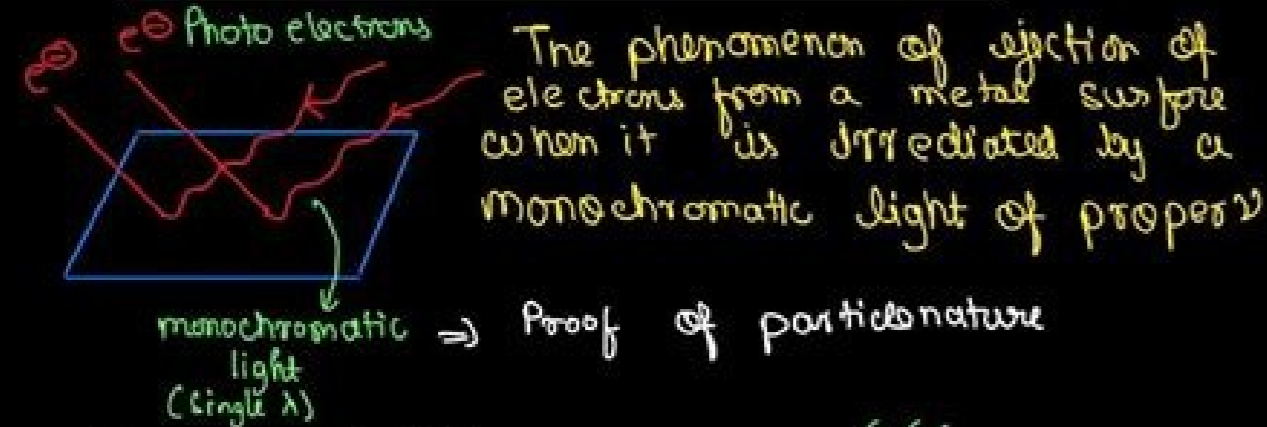 e⊖
e⊖ Photo electrons
The phenomenon of ejection of
electrons from a metal surface
when it is irrediated by a
monochromatic light of proper ν
monochromatic
light
(Single λ)
⇒ Proof of particle nature